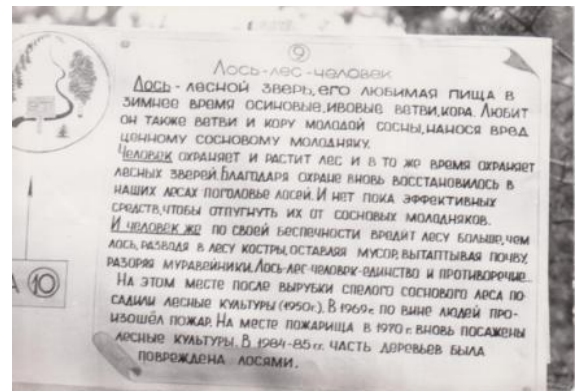 9
Лось-лес-человек
Лось - лесной зверь, его любимая пища в
зимнее время осиновые, ивовые ветви, кора. Любит
он также ветви и кору молодой сосны, нанося вред
ценному сосновому молодняку.
Человек охраняет и растит лес и в то же время охраняет
лесных зверей. Благодаря охране вновь восстановилось в
наших лесах поголовье лосей. И нет пока эффективных
средств, чтобы отпугнуть их от сосновых молодняков.
И человек же по своей беспечности вредит лесу больше, чем
лось, разводя в лесу костры, оставляя мусор, вытаптывая почву,
разоряя муравейники. Лось-лес-человек-единство и противоречие...
На этом месте после вырубки спелого соснового леса по-
садили лесные культуры (1950г.). В 1969г. по вине людей про-
изошёл пожар. На месте пожарища в 1970 г. вновь посажены
лесные культуры. В 1984-85 гг. часть деревьев была
повреждена лосями.
А 10